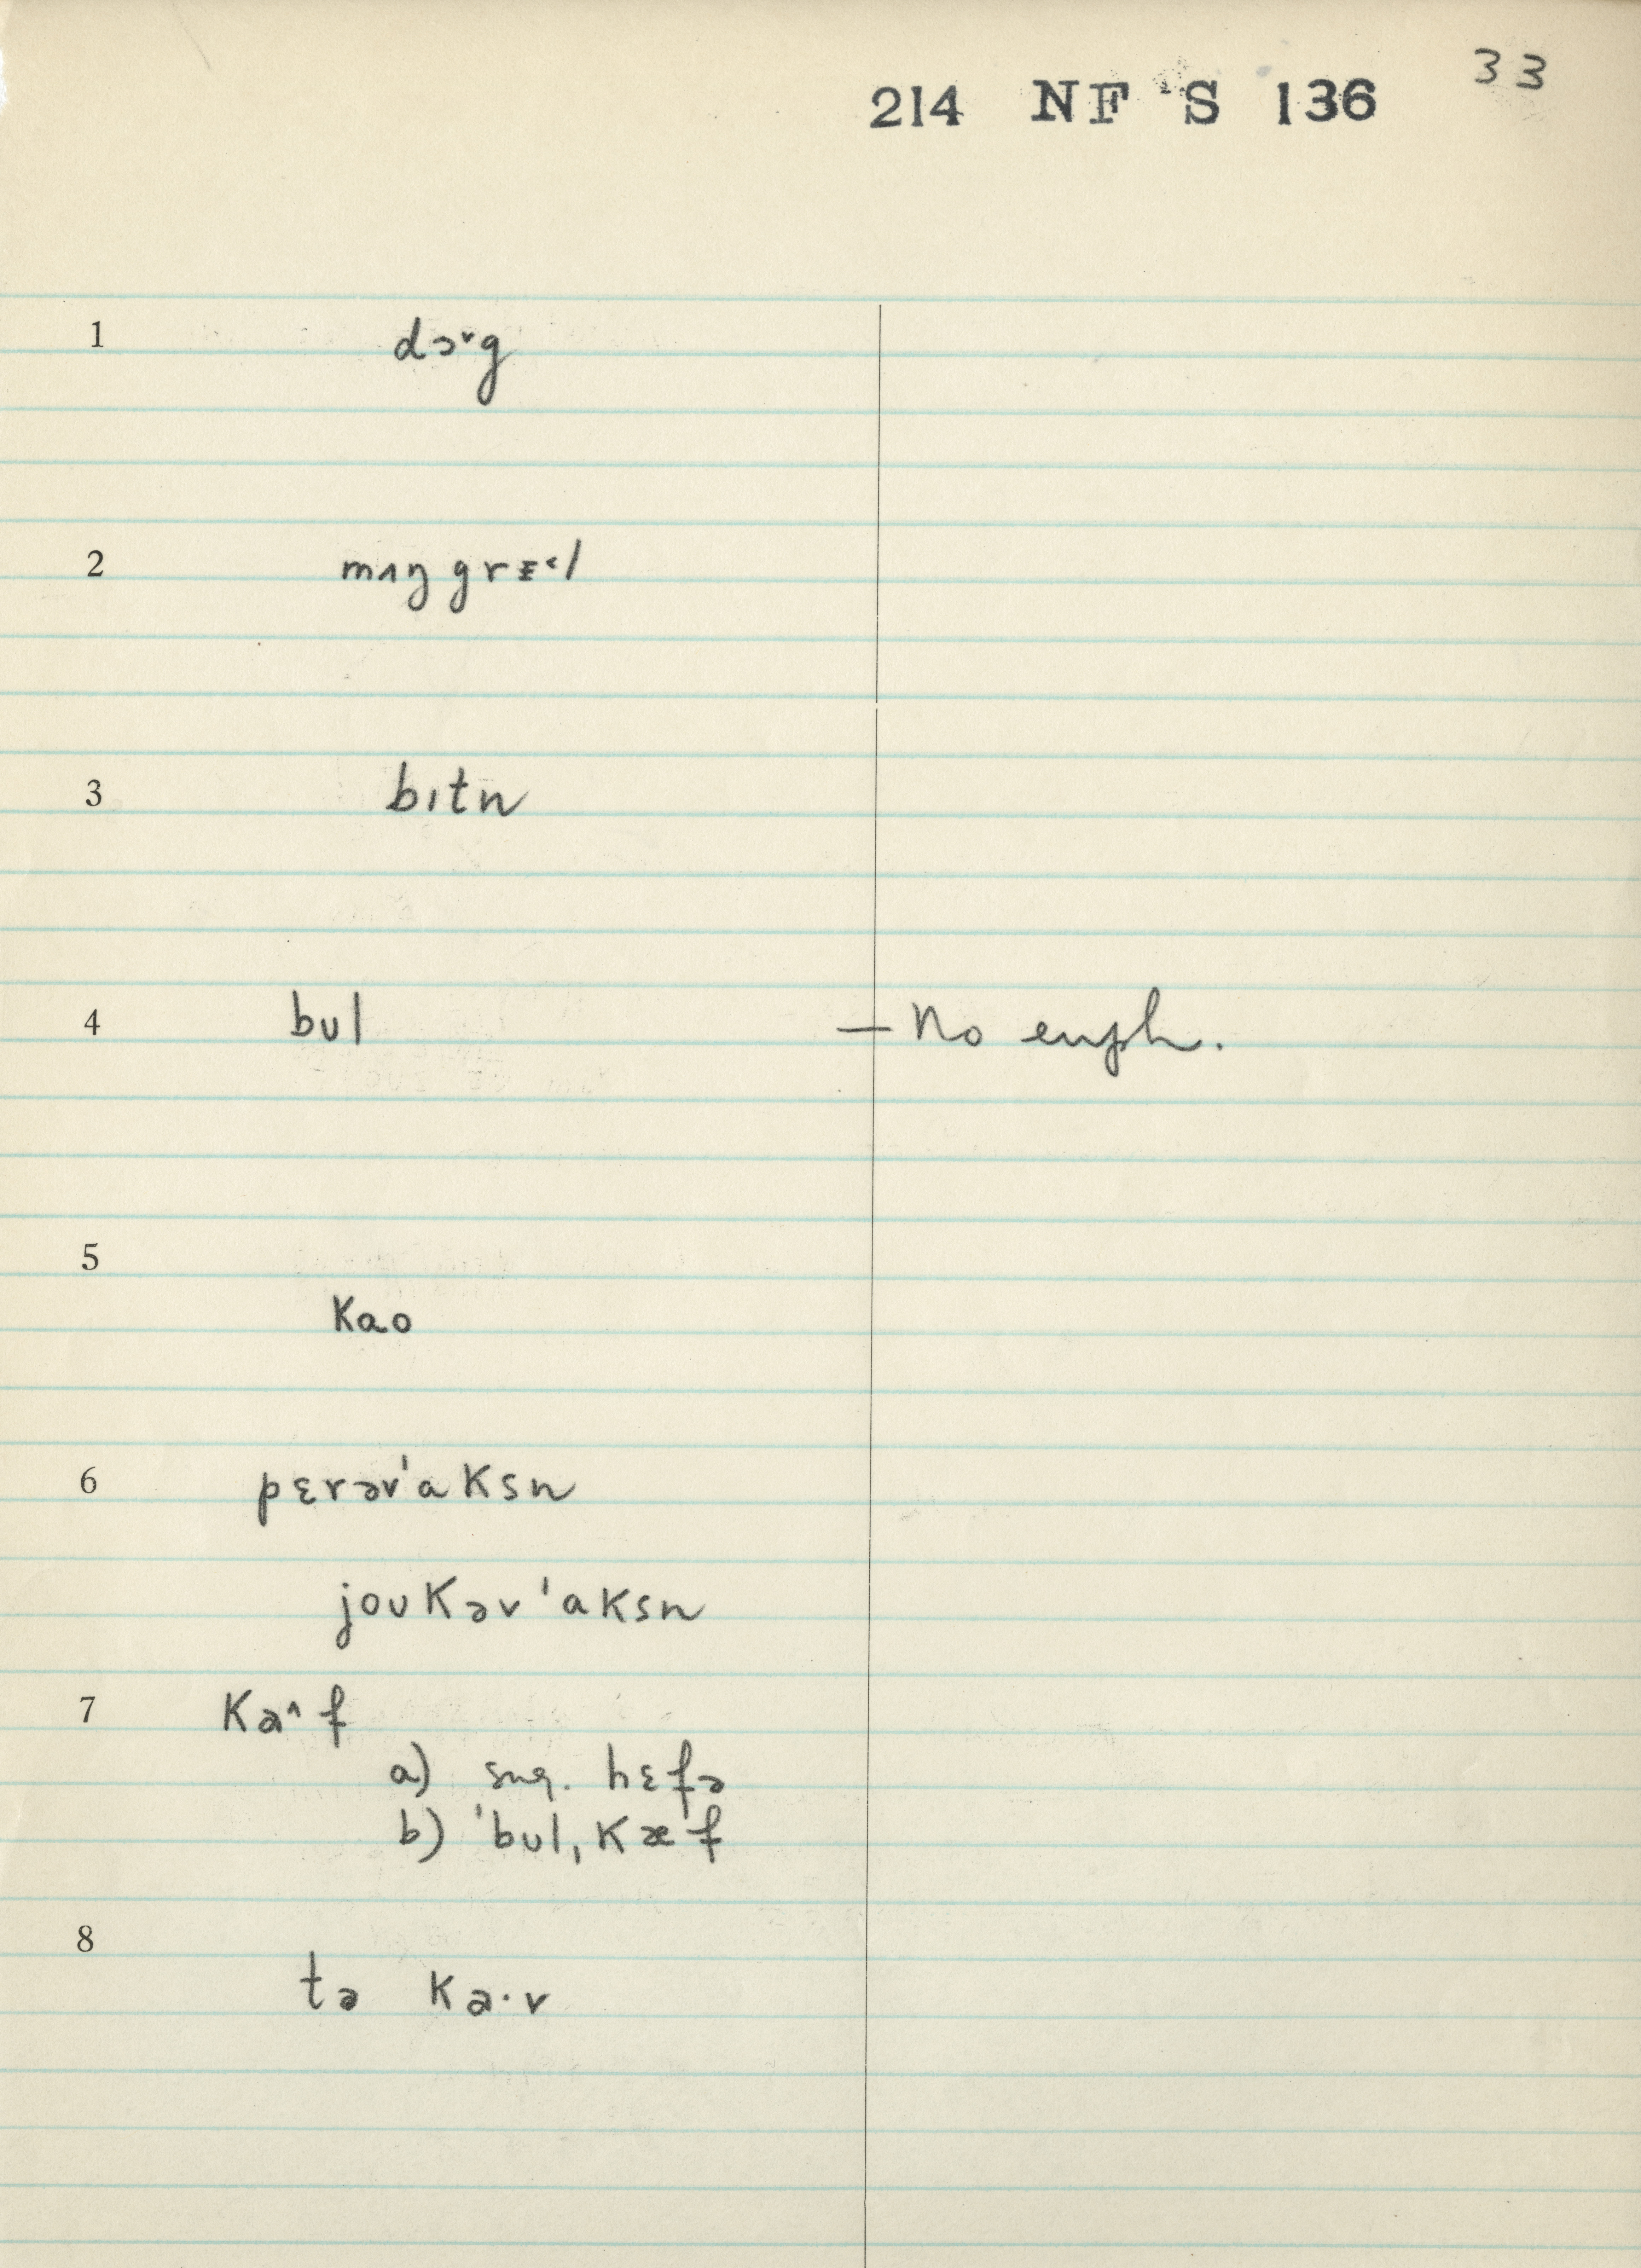 33
214 NF'S 136
1 dɔ˅g
2 mʌŋgrɛ˂l
3 bɪtn
4 bʊl — No euph.
5 kao
6 pɛrəv'aksn
joʊkəv'aksn
7 ka^f
a) sug. hɛfə
b) 'bʊl,kæf
8 tə ka·v